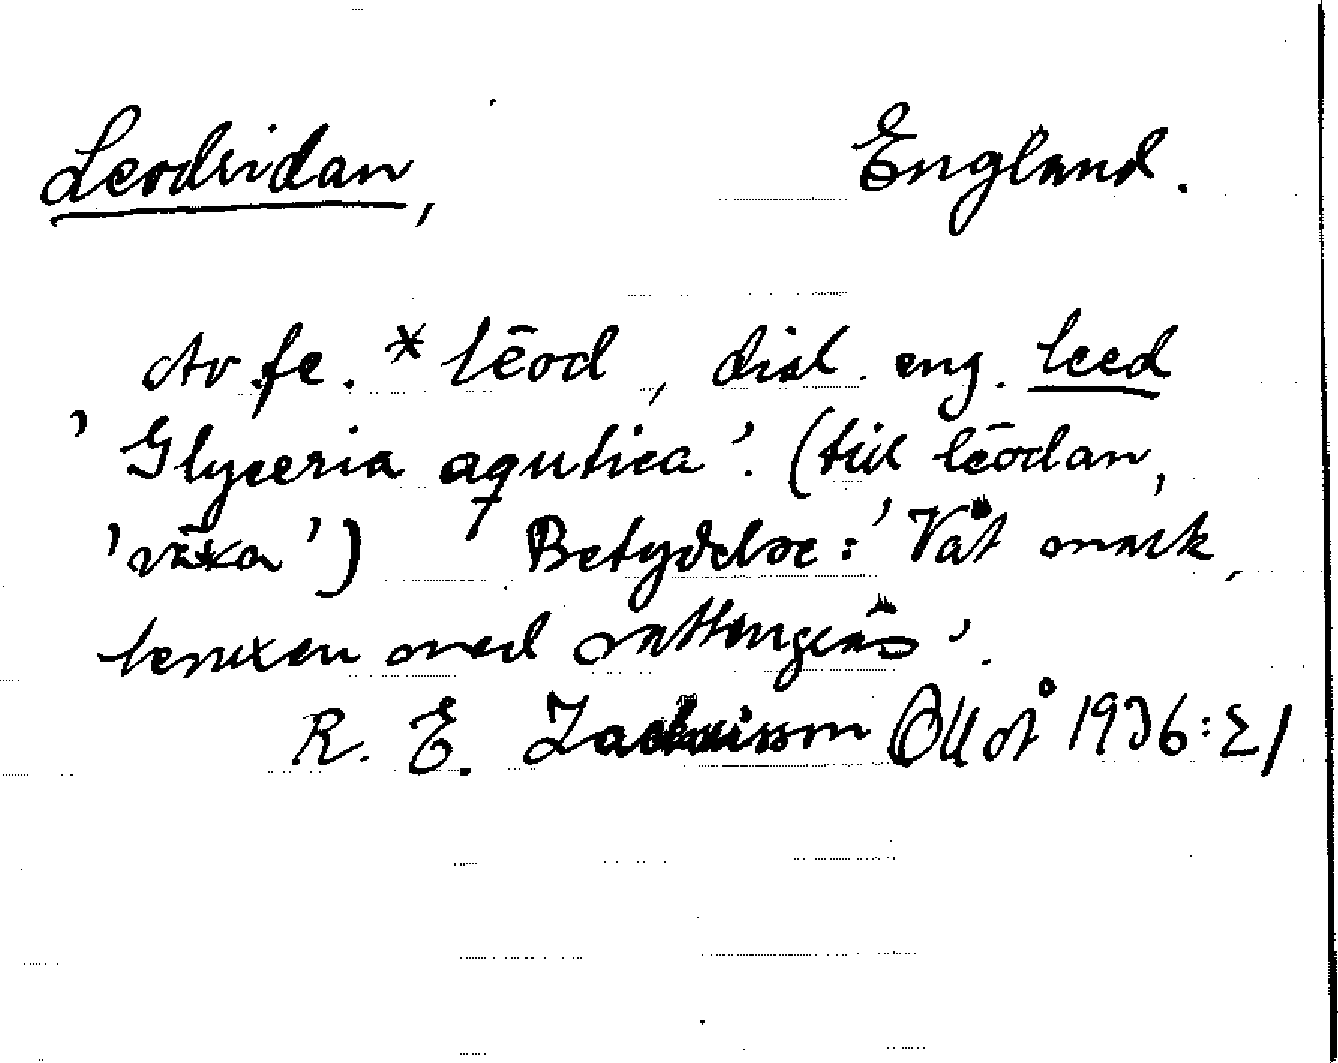 Leodridan, England.
Av fe. *lēod, dial. eng. leed
'Glyceria aqutica'. (till lēodan,
'växa') Betydelse: 'Våt mark,
bevuxen med vattengräs'.
R. E. Zachrisson 1936:21